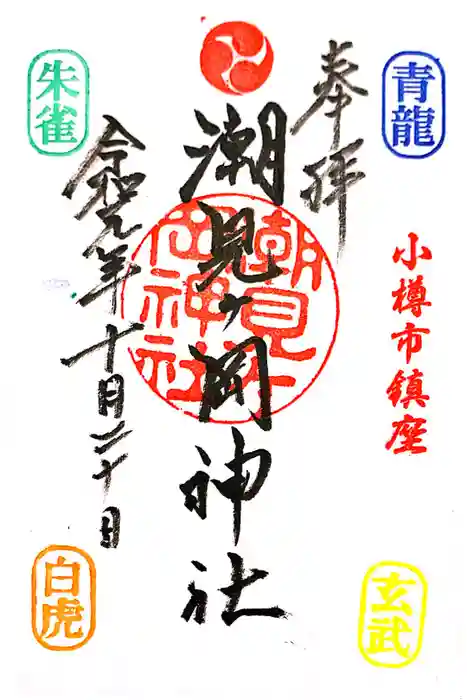 奉拝
青龍
小樽市鎮座
玄武
潮見ヶ岡神社
潮見ヶ岡神社
朱雀
令和元年十月二十日
白虎